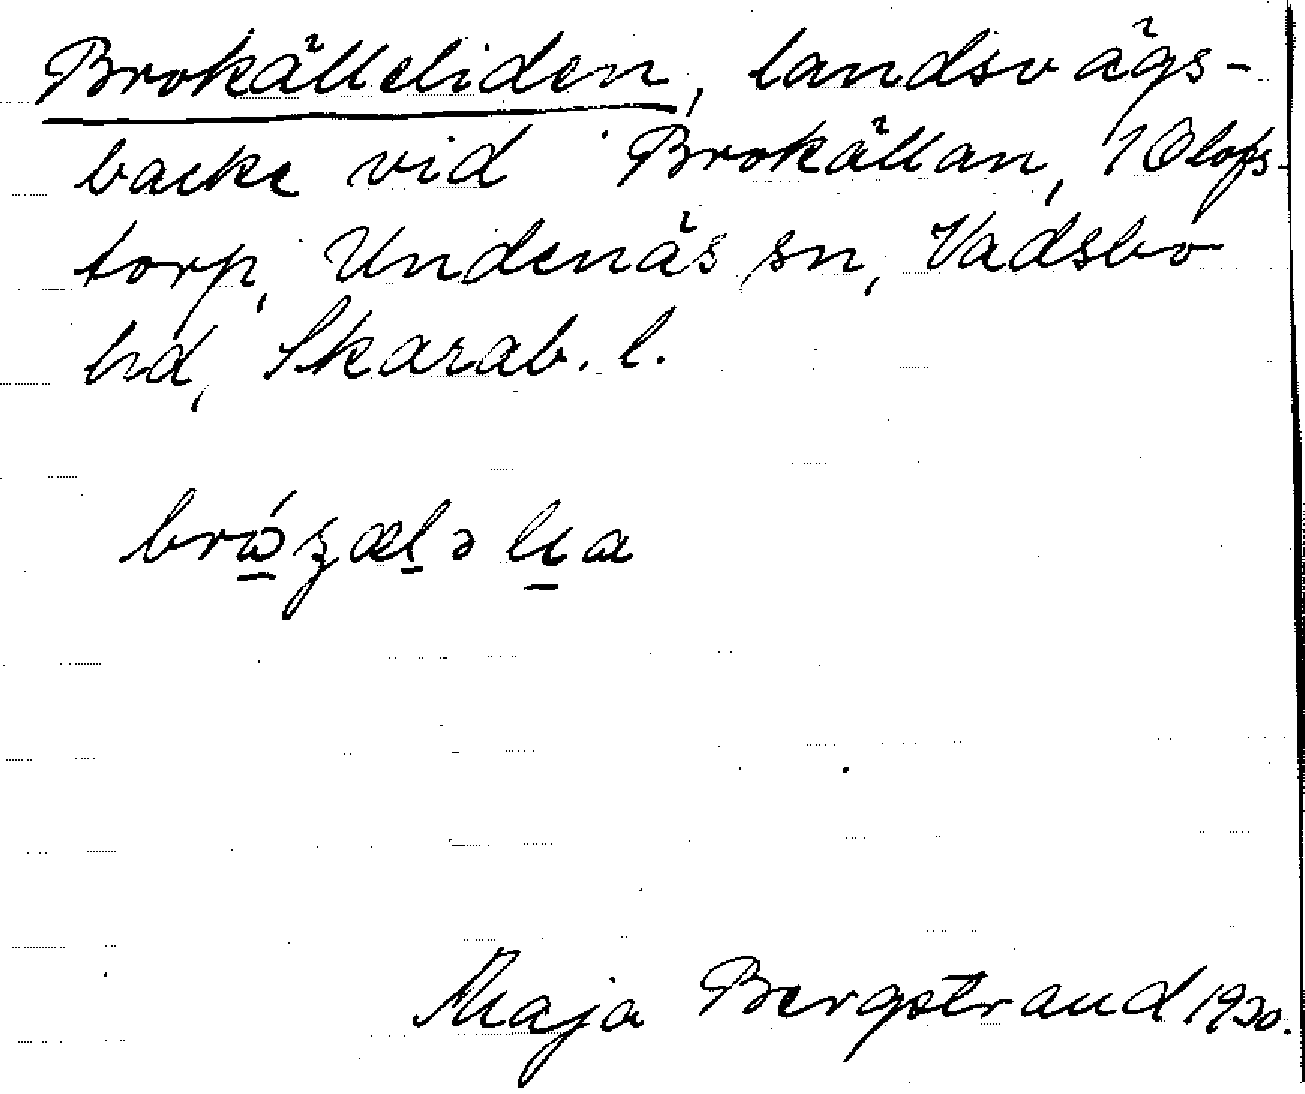 Brokälleliden, landsvägs-
backe vid Brokällan, 1 Olofs-
torp, Undenäs sn, Vadsbo
hd, Skarab. l.
Maja Bergstrand 1920.